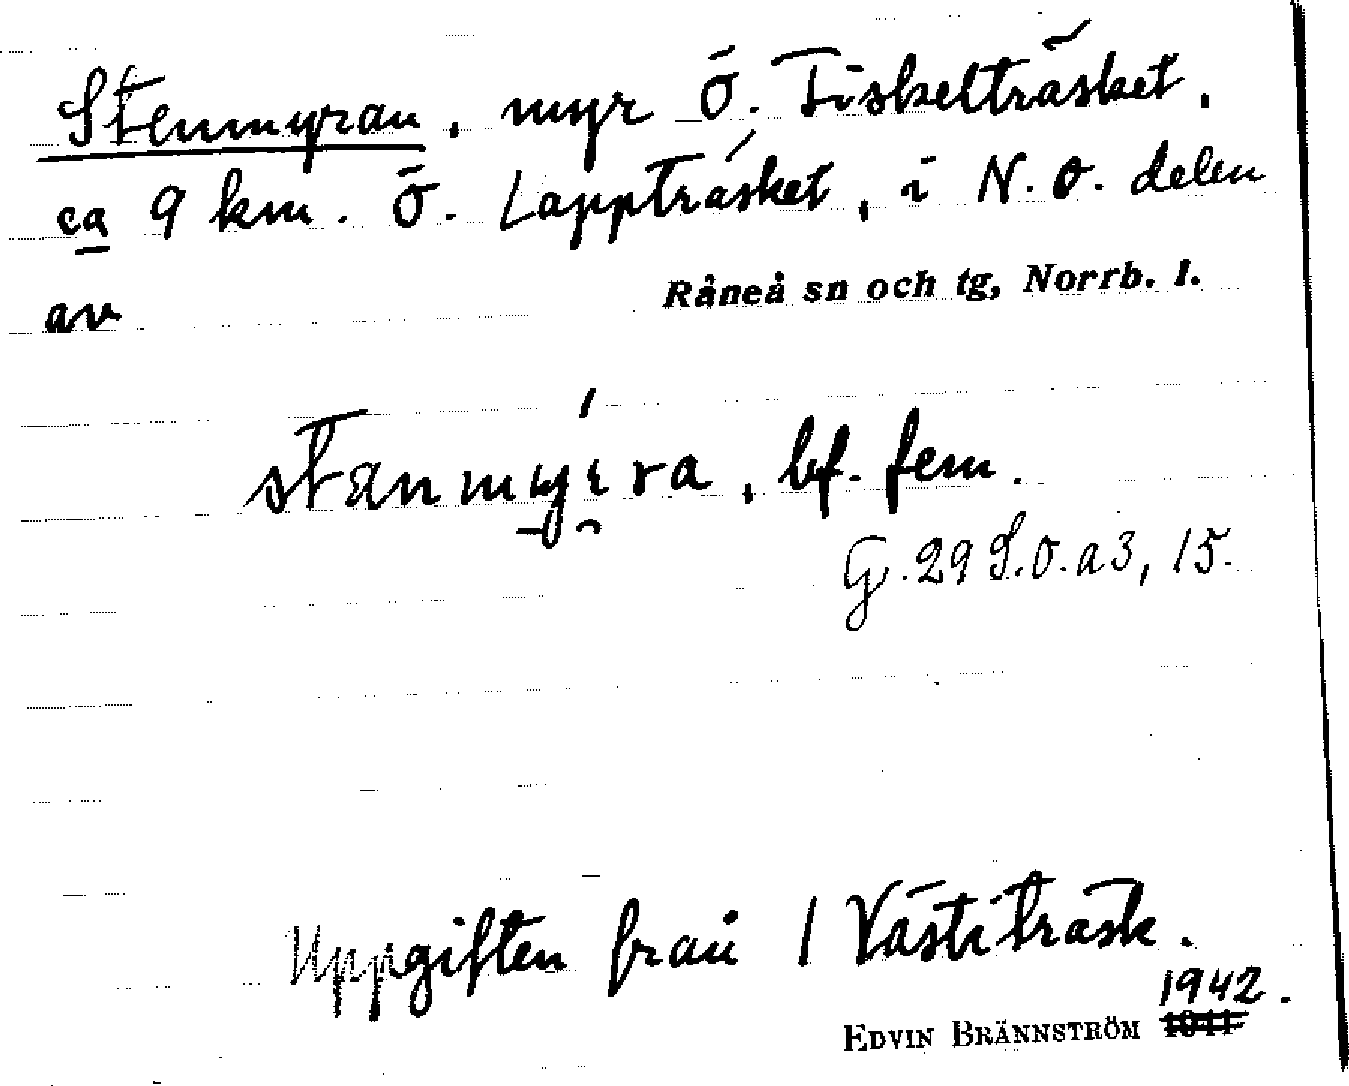 Stenmyran, myr Ö. Fiskelträsket,
ca 9 km. Ö. Lappträsket, i N.O. delen
av Råneå sn och tg, Norrb. l.
stanmyi̯ra, bf. fem.
G. 29 S.O. a3, 15.
Uppgiften från 1 Västiträsk.
1942.
EDVIN BRÄNNSTRÖM 1941